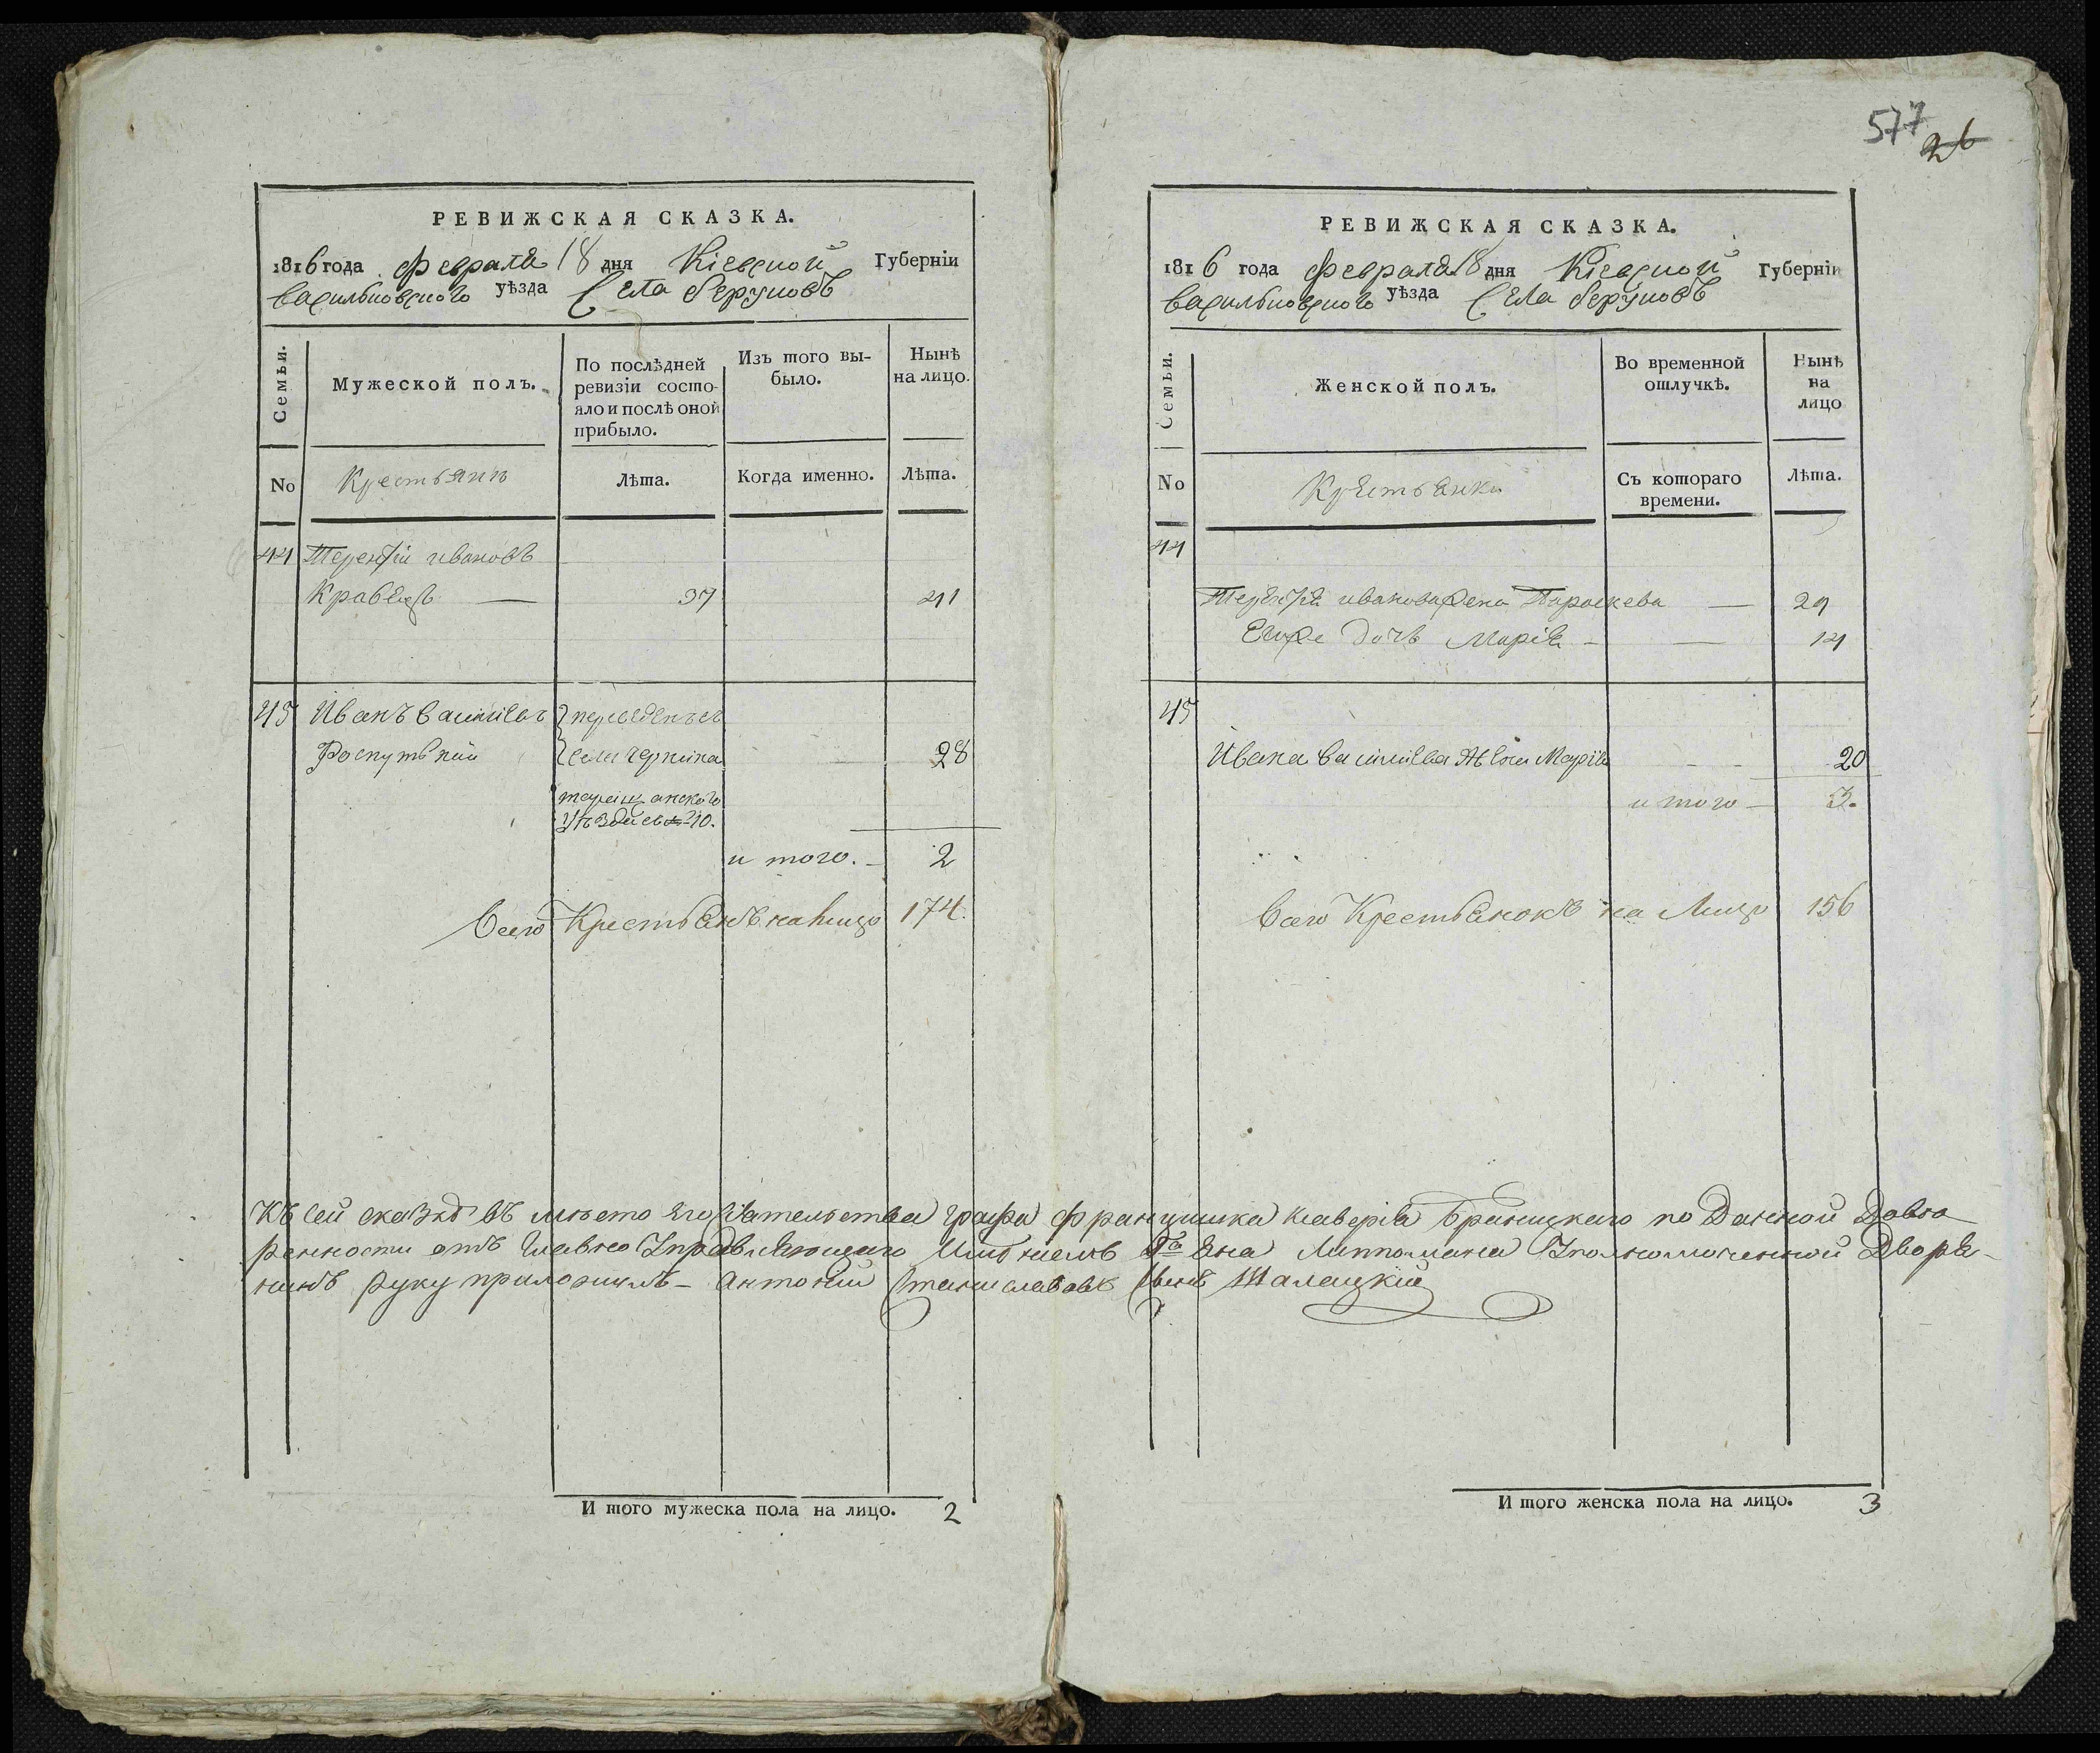 РЕВИЖСКАЯ СКАЗКА.
1816 года Февраля 18 дня Кіевской Губерніи
Васильковского уѣзда Села
Семьи.
Мужеской полъ.
По послѣдней ревизіи состо-
яло и послѣ оной
прибыло.
Изъ того вы-
было.
Нынѣ
на лицо.
No
Крестьянъ
Лѣта.
Когда именно.
Лѣта.
44 Терентій Ивановъ
Кравецъ — 37 41
45 Иванъ Василіевъ переведенъ съ
Роспутній села 28
таращанского
уѣзда
и того. — 2
Всего Крестьянъ на лицо 174.
И того мужеска пола на лицо. 2
577
26
РЕВИЖСКАЯ СКАЗКА.
1816 года Февраля 18 дня Кіевской Губерніи
Васильковского уѣзда Села
Семьи.
Женской полъ.
Во временной
отлучкѣ.
Нынѣ
на
лицо
No
Крестьянки
Съ котораго
времени.
Лѣта.
44
Терентія Иванова жена Параскева — 29
Его же дочь Марія — — 14
45
Ивана Василіева жена Марія — — 20
и того — 3.
Всего Крестьянокъ на Лицо 156
Къ сей сказкѣ въ мѣсто его Сіятельства графа Францишка Ксаверія Браницкаго по Данной Довѣ
ренности отъ Главно Управляющаго Имѣніемъ Г-на Яна Липпомана Уполномоченной Дворя-
нинъ руку приложилъ — Антоній Станиславовъ Сынъ
И того женска пола на лицо. 3